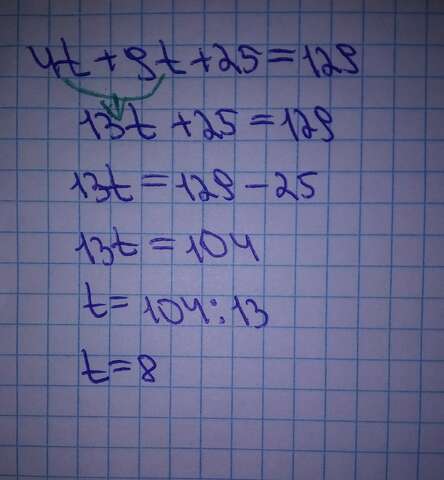 4t + 9t + 25 = 129
13t + 25 = 129
13t = 129 - 25
13t = 104
t = 104 : 13
t = 8